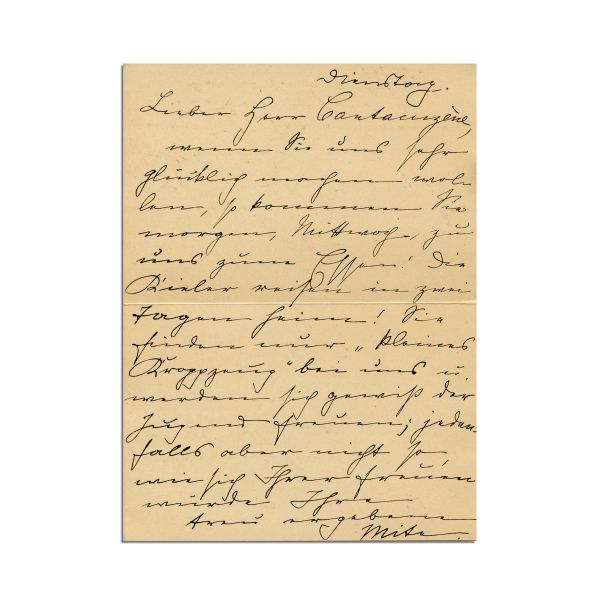 Dienstag.
Lieber Herr Cantacuzène,
wenn Sie uns sehr
glücklich machen wol-
len, so kommen Sie
morgen, Mittwoch, zu
uns zum Essen! Die
Kieler reisen in zwei
Tagen heim! Sie
finden nur „kleines
Kroppzeug" bei uns u.
werden sich gewiß der
Jugend freuen; jeden-
falls aber nicht so
wie sich Ihrer freuen
würde Ihre
treu ergebene
Mite.